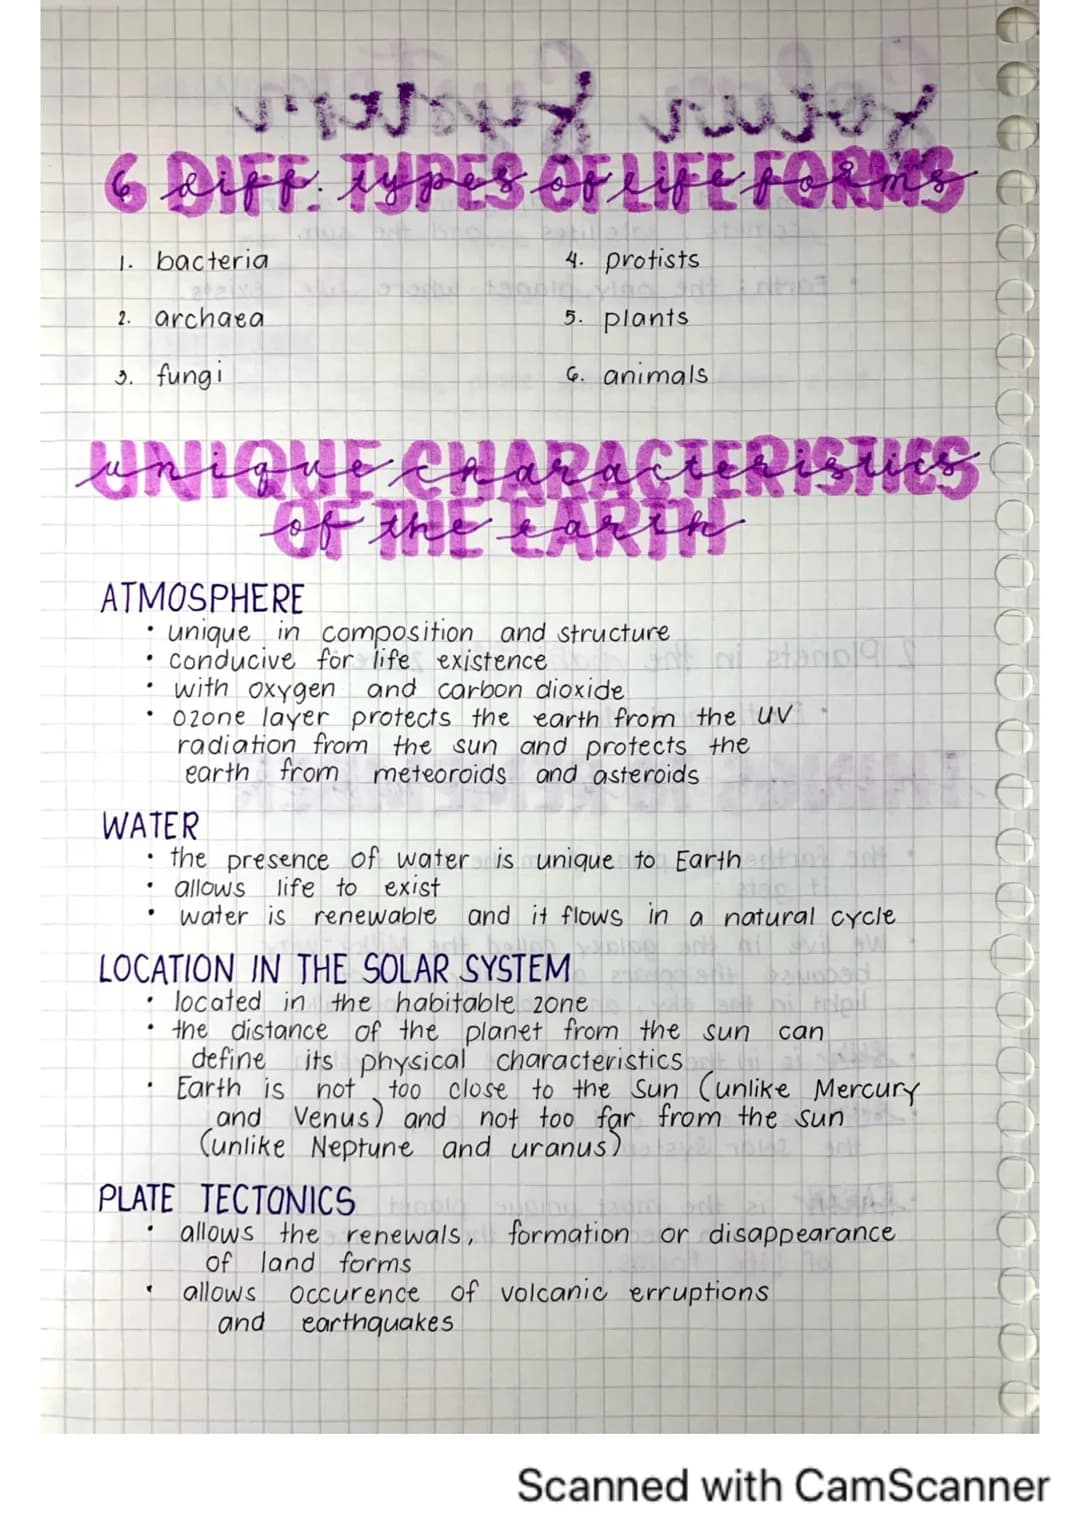 6 DIFF. TYPES OF LIFE FORMS
1. bacteria
2. archaea
3. fungi
4. protists
5. plants
6. animals
UNIQUE CHARACTERISTICS
OF THE EARTH
ATMOSPHERE
• unique in composition and structure
• conducive for life existence
• with oxygen and carbon dioxide
• ozone layer protects the earth from the UV
radiation from the sun and protects the
earth from meteoroids and asteroids
WATER
• the presence of water is unique to Earth
• allows life to exist
• water is renewable and it flows in a natural cycle
LOCATION IN THE SOLAR SYSTEM
• located in the habitable zone
• the distance of the planet from the sun can
define its physical characteristics
• Earth is not too close to the Sun (unlike Mercury
and Venus) and not too far from the sun
(unlike Neptune and uranus)
PLATE TECTONICS
• allows the renewals, formation or disappearance
of land forms
• allows occurence of volcanic erruptions
and earthquakes
Scanned with CamScanner